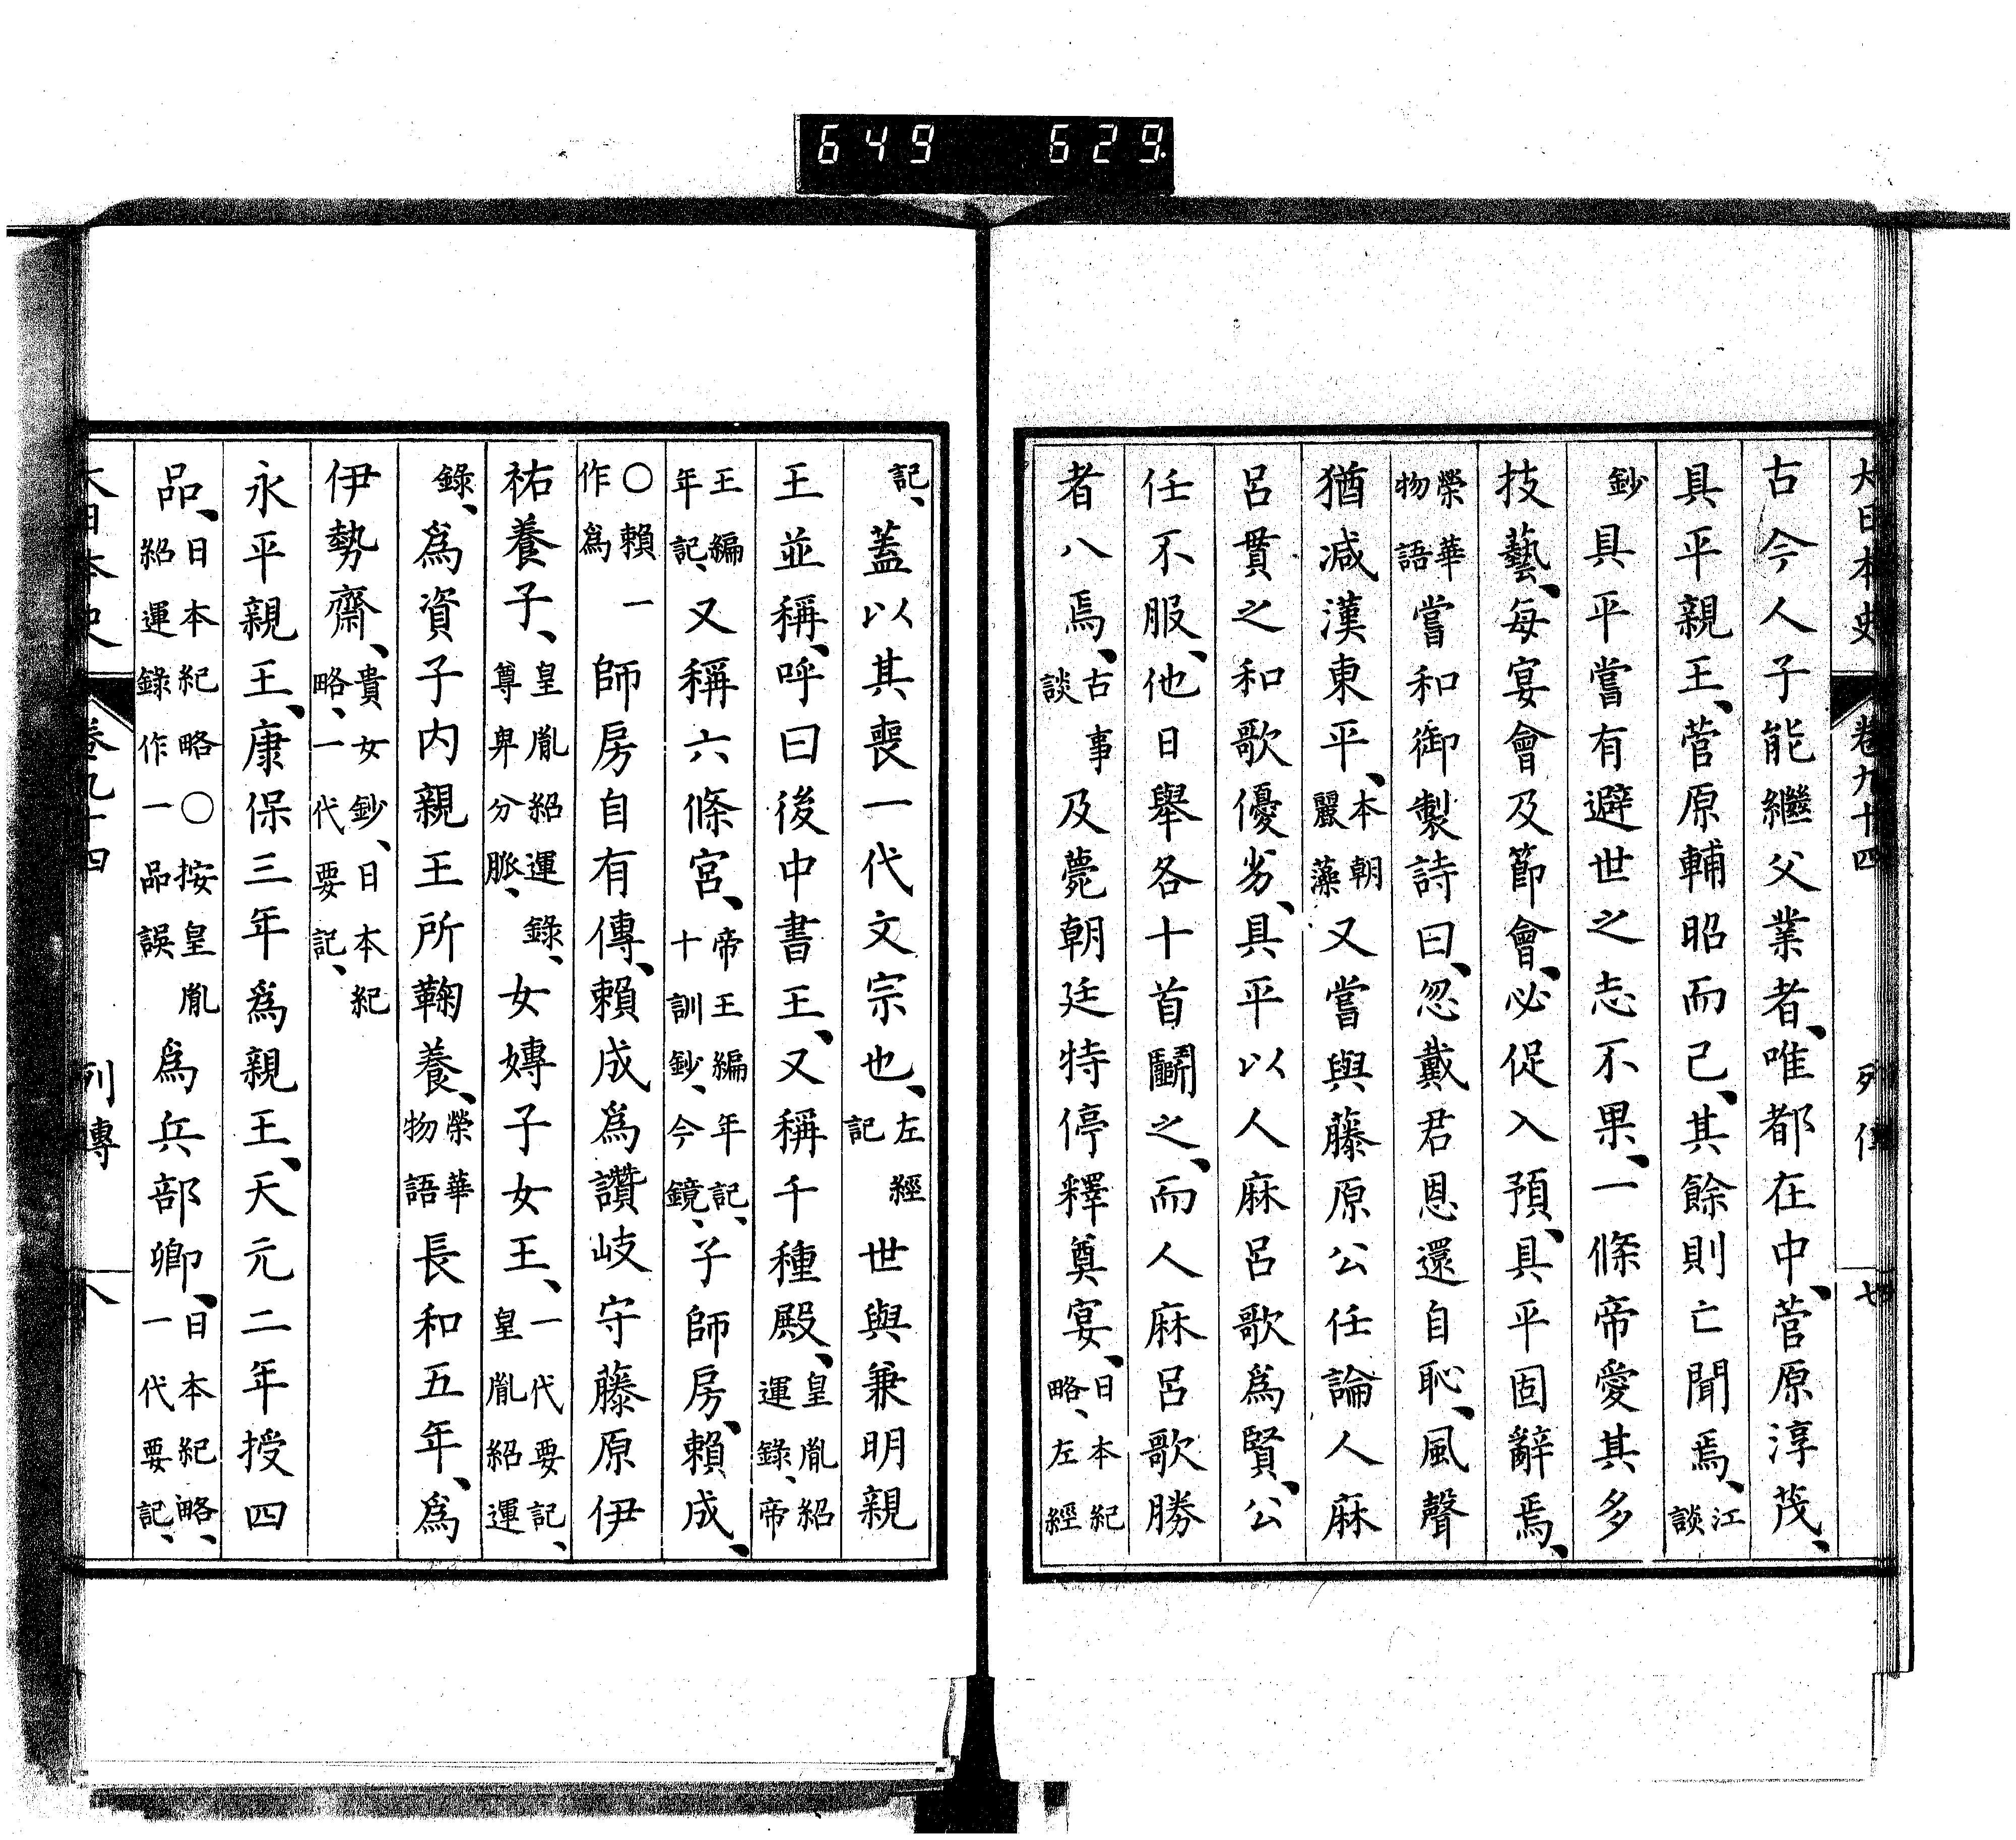 649 629.
大日本史 卷九十四 列傳 七
古今人子能繼父業者、唯都在中、菅原淳茂、
具平親王、菅原輔昭而已、其餘則亡聞焉、江談
鈔具平嘗有避世之志不果、一條帝愛其多
技藝、每宴會及節會、必促入預、具平固辭焉、
榮華物語嘗和御製詩曰、忽戴君恩還自恥、風聲
猶減漢東平、本朝麗藻又嘗與藤原公任論人麻
呂貫之和歌優劣、具平以人麻呂歌爲賢、公
任不服、他日舉各十首鬭之、而人麻呂歌勝
者八焉、古事談及薨朝廷特停釋奠宴、日本紀略、左經
記、蓋以其喪一代文宗也、左經記世與兼明親
王並稱、呼曰後中書王、又稱千種殿、皇胤紹運錄、帝
王編年記、又稱六條宮、帝王編年記、十訓鈔、今鏡、子師房、賴成、
○賴一作爲師房自有傳、賴成爲讚岐守藤原伊
祐養子、皇胤紹運錄、尊卑分脈、女嫥子女王、一代要記、皇胤紹運
錄、爲資子内親王所鞠養、榮華物語長和五年、爲
伊勢齋、貴女鈔、日本紀略、一代要記、
永平親王、康保三年爲親王、天元二年授四
品、日本紀略○按皇胤紹運錄作一品誤爲兵部卿、日本紀略、一代要記、
大日本史 卷九十四 列傳 八